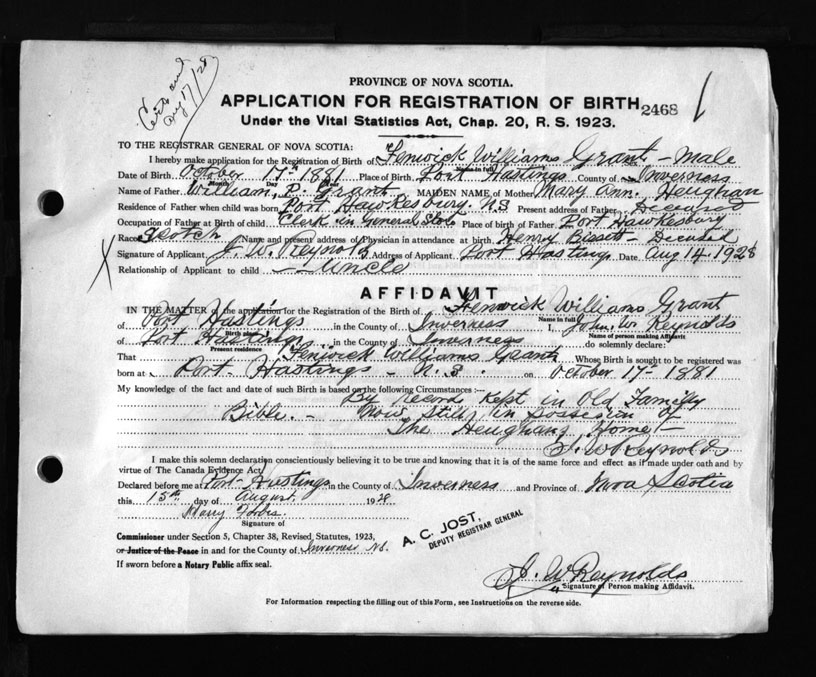 Certs and
Aug 17/28
PROVINCE OF NOVA SCOTIA.
APPLICATION FOR REGISTRATION OF BIRTH. 2468
Under the Vital Statistics Act, Chap. 20, R. S. 1923.
TO THE REGISTRAR GENERAL OF NOVA SCOTIA:
I hereby make application for the Registration of Birth of Fenwick Williams Grant - Male
Name in full
Date of Birth October 17th 1881 Place of Birth Port Hastings County of Inverness
Month Day Year
Name of Father William, P. Grant MAIDEN NAME of Mother Mary Ann. Heughan
Residence of Father when child was born Port Hawkesbury. N.S Present address of Father Deceased
Occupation of Father at Birth of child Clerk in General Store Place of birth of Father Port Hawkesbury
Race Scotch Name and present address of Physician in attendance at birth Henry Bissett - Deceased
Signature of Applicant J. W. Reynolds Address of Applicant Port Hastings Date Aug 14. 1928
Relationship of Applicant to child -- Uncle
X
AFFIDAVIT
IN THE MATTER of the application for the Registration of the Birth of Fenwick Williams Grant
Name in full
of Port Hastings in the County of Inverness I, John. W. Reynolds
Birth place Name of person making Affidavit
of Port Hastings in the County of Inverness do solemnly declare:
Present residence
That Fenwick Williams Grant Whose Birth is sought to be registered was
born at Port Hastings - N.S. on October 17th 1881
My knowledge of the fact and date of such Birth is based on the following Circumstances :—
By Record Kept in Old Family
Bible. - Now still in Possesion of
The Heughans Home -
J. W Reynolds
I make this solemn declaration conscientiously believing it to be true and knowing that it is of the same force and effect as if made under oath and by
virtue of The Canada Evidence Act
Declared before me at Port Hastings in the County of Inverness and Province of Nova Scotia
this 15th day of August 1928
Signature of
Commissioner under Section 5, Chapter 38, Revised Statutes, 1923,
or Justice of the Peace in and for the County of Inverness N.S.
If sworn before a Notary Public affix seal.
A. C. JOST,
DEPUTY REGISTRAR GENERAL
J. W Reynolds
Signature of Person making Affidavit.
For Information respecting the filling out of this Form, see Instructions on the reverse side.